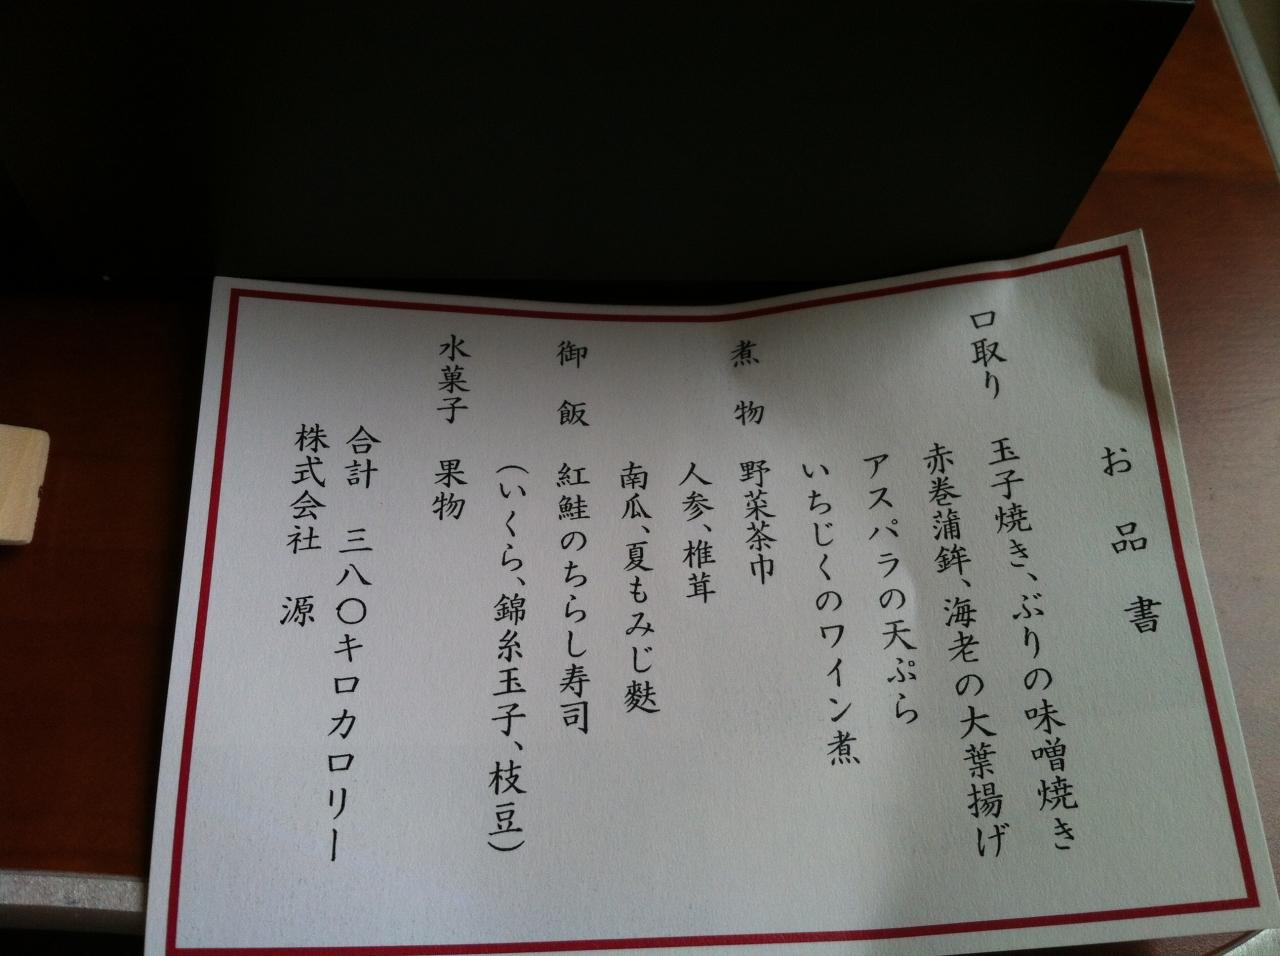 お品書
口取り 玉子焼き、ぶりの味噌焼き
赤巻蒲鉾、海老の大葉揚げ
アスパラの天ぷら
いちじくのワイン煮
煮物 野菜茶巾
人参、椎茸
南瓜、夏もみじ麩
御飯 紅鮭のちらし寿司
（いくら、錦糸玉子、枝豆）
水菓子 果物
合計 三八〇キロカロリー
株式会社 源